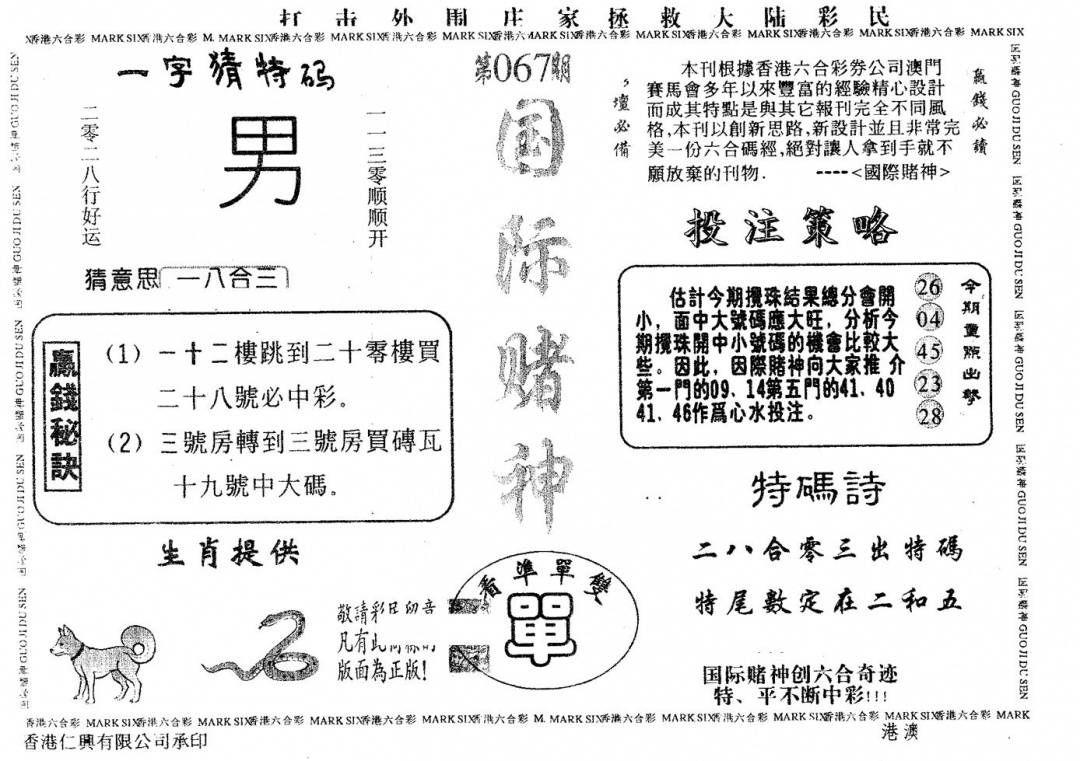 打击外围庄家拯救大陆彩民
X香港六合彩 MARK SIX香港六合彩 M. MARK SIX香港六合彩 MARK SIX香港六合彩 MARK SIX香港六合彩 MARK SIX香港六合彩 MARK SIX香港六合彩 MARK SIX香港六合彩 MARK SIX
一字猜特码
二零二八行好运
男
一一三零顺顺开
猜意思 一八合三
赢錢秘訣
(1) 一十二樓跳到二十零樓買
二十八號必中彩。
(2) 三號房轉到三號房買磚瓦
十九號中大碼。
生肖提供
敬請彩民留意
版面為正版!
第067期
国际赌神
看準單雙
單
壇必備
本刊根據香港六合彩券公司澳門
賽馬會多年以來豐富的經驗精心設計
而成其特點是與其它報刊完全不同風
格,本刊以創新思路,新設計並且非常完
美一份六合碼經,絕對讓人拿到手就不
願放棄的刊物. ----<國際賭神>
赢錢必讀
投注策略
估計今期攪珠結果總分會開
小，面中大號碼應大旺，分析今
期攪珠開中小號碼的機會比較大
些。因此，因際賭神向大家推介
第一門的09、14第五門的41、40
41、46作爲心水投注。
26
04
45
23
28
今期重點出擊
特碼詩
二八合零三出特碼
特尾數定在二和五
国际赌神创六合奇迹
特、平不断中彩!!!
国际赌神 GUO JI DU SEN 国际赌神 GUO JI DU SEN 国际赌神 GUO JI DU SEN 国际赌神 GUO JI DU SEN 国际赌神 GUO JI DU SEN
香港六合彩 MARK SIX香港六合彩 MARK SIX香港六合彩 MARK SIX香港六合彩 MARK SIX香港六合彩 M. MARK SIX香港六合彩 MARK SIX香港六合彩 MARK SIX香港六合彩 MARK SIX香港六合彩 MARK
香港仁興有限公司承印
港澳